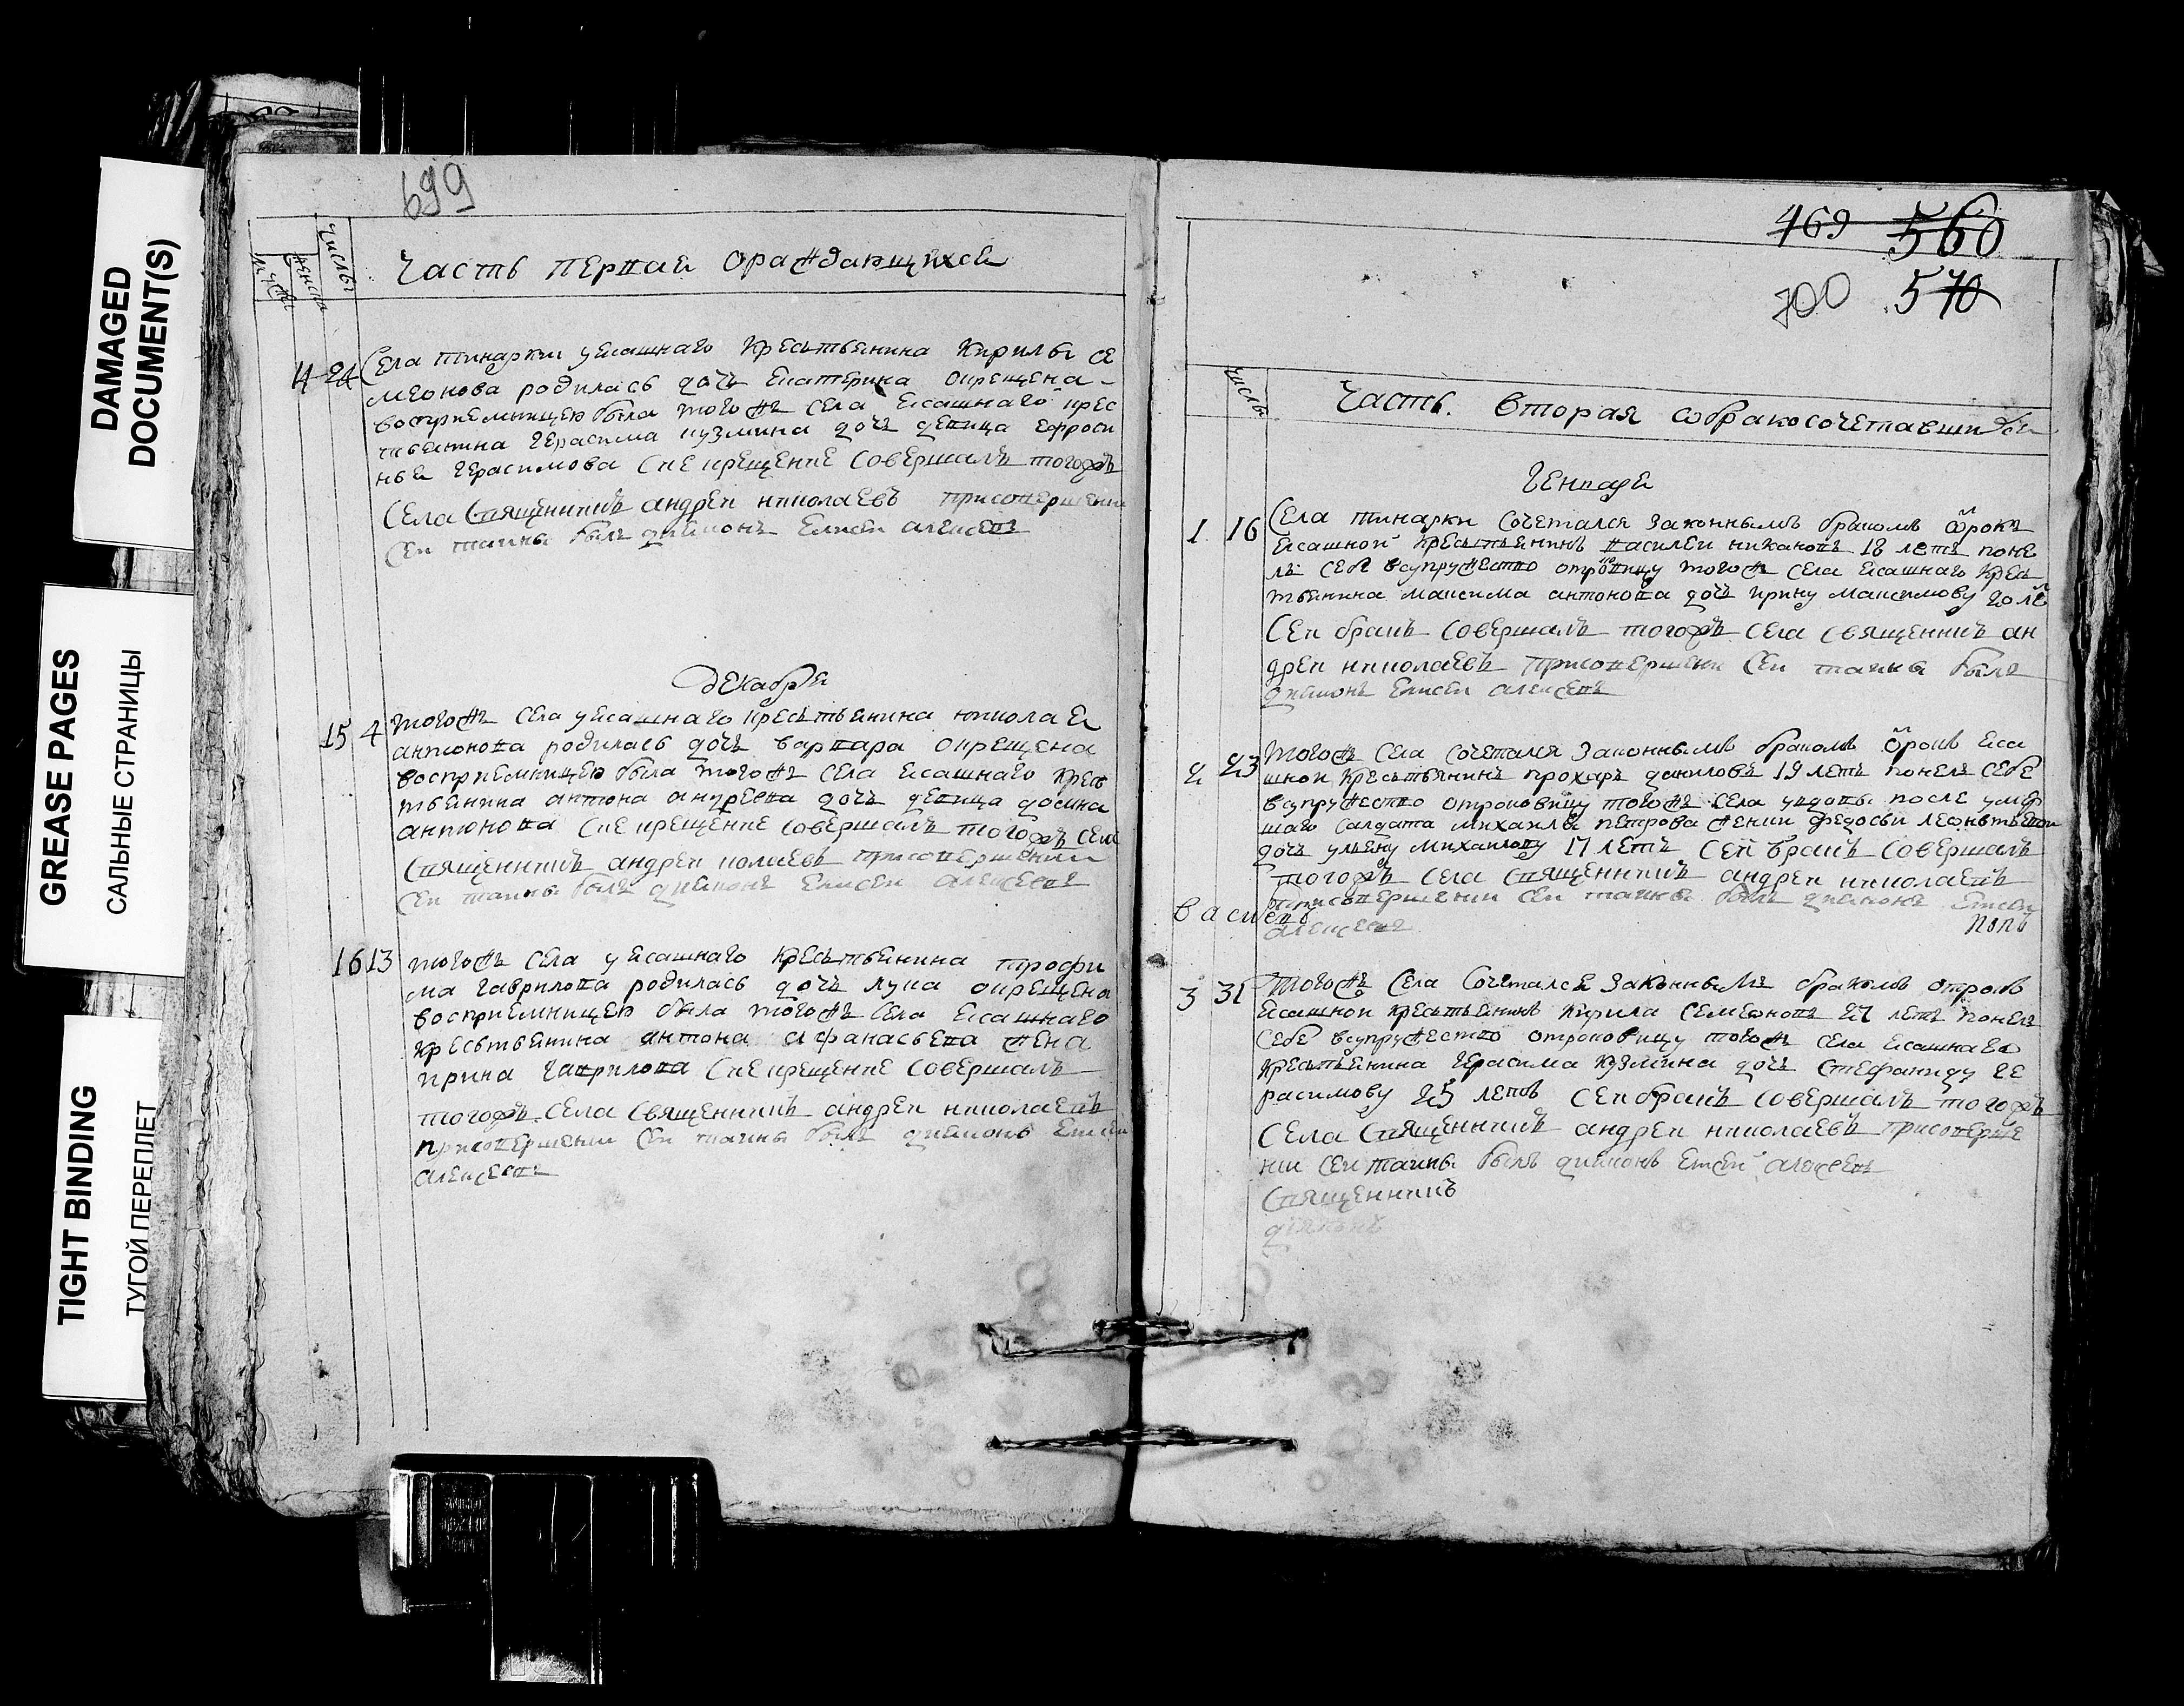 DAMAGED
DOCUMENT(S)
GREASE PAGES
САЛЬНЫЕ СТРАНИЦЫ
TIGHT BINDING
ТУГОЙ ПЕРЕПЛЕТ
699
числы
женска
муж
Часть первая ораждающихся
14 24 Села тинарки уясашнаго кресьтьянина Кирилы се
меонова родилась дочь Екатерина окрещена
восприемницею была тогожъ села ясашнаго крес
тьянина герасима кузмина дочь девица ефроси
нья герасимова сие крещение совершалъ тогожъ
села священникъ андреи николаевъ присовершени
сеи таины былъ дияконъ Елисеи алексевъ
Декабря
15 4 тогожъ села уясашнаго кресьтьянина николая
антонова родилась дочь варвара окрещена
восприемницею была тогожъ села ясашнаго крес
тьянина антона андреева дочь девица
антонова сие крещение совершалъ тогожъ села
священникъ андреи присовершении
сеи таины былъ дияконъ Елисеи алексевъ
16 13 тогожъ села уясашнаго кресьтьянина трофи
ма гаврилова родилась дочь окрещена
восприемницею была тогожъ села ясашнаго
кресьтьянина антона афанасьева жена
ирина гаврилова сие крещение совершалъ
тогожъ села священникъ андреи николаевъ
присовершении сеи таины былъ дияконъ Елисеи
алексевъ
469 560
700 570
числы
Часть. вторая собракосочетавшихся
Генваря
1 16 Села тинарки сочетался законнымъ бракомъ отрокъ
ясашной кресьтьянинъ василеи никановъ 18 летъ поне
лъ себе всупружество отроковицу тогожъ села ясашнаго крес
тьянина максима антонова дочь ирину максимову 20 ле
сеи бракъ совершалъ тогожъ села священникъ ан
дреи николаевъ присовершени сеи таины былъ
дияконъ Елисеи алексевъ
2 23 тогожъ села сочетался законнымъ бракомъ отрокъ яса
шнои кресьтьянинъ прохаръ даниловъ 19 летъ понелъ себе
всупружество отроковицу тогожъ села удовы после умер
шаго салдата михаилы петрова жении федосьи леонтьевои
дочь ульену михаилову 17 летъ сеи бракъ совершалъ
тогожъ села священникъ андреи николаевъ
присовершении сеи таины былъ дияконъ Елисеи
алексевъ
попъ
3 31 тогожъ села сочетался законнымъ бракомъ отрокъ
ясашнои кресьтьянинъ Кирила семеоновъ 27 летъ понелъ
себе всупружество отроковицу тогожъ села ясашнаго
кресьтьянина герасима кузмина дочь стефаниду ге
расимову 25 летъ сеи бракъ совершалъ тогожъ
села священникъ андреи николаевъ присоверше
нии сеи таины былъ дияконъ Елисеи алексевъ
Священникъ
дияконъ